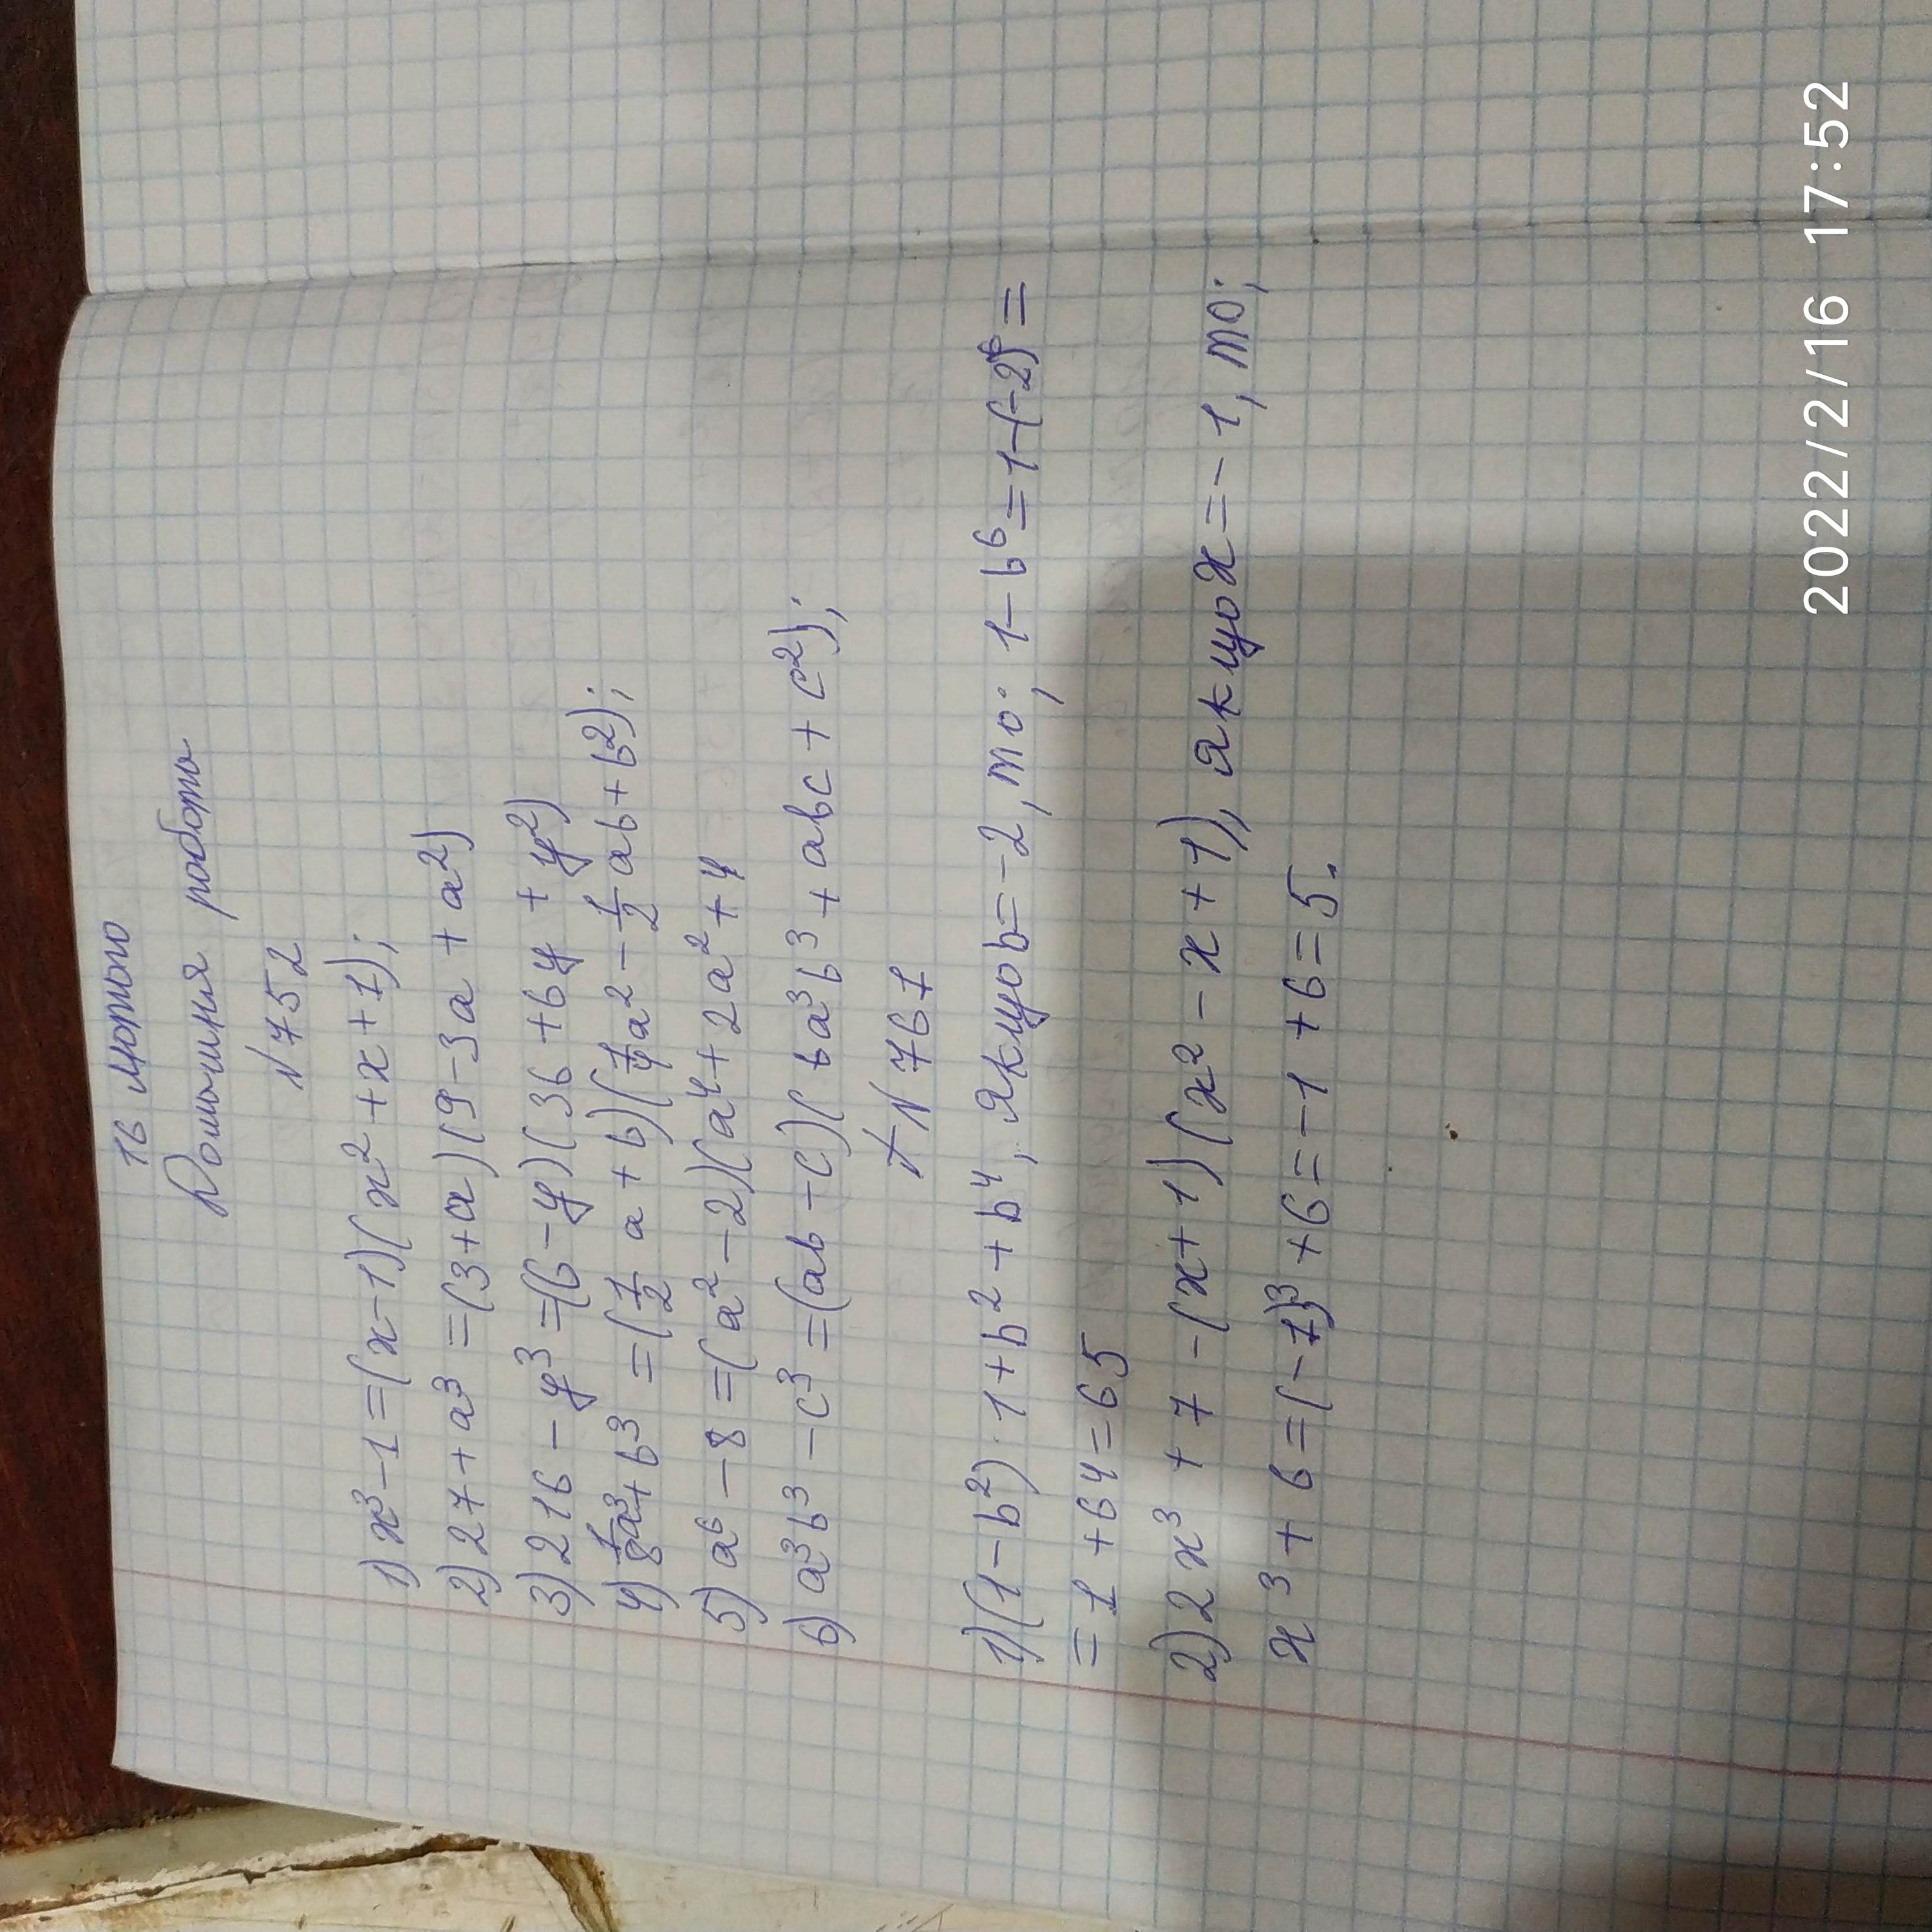 16 лютого
Домашня робота
N752
1) x³-1=(x-1)(x²+x+1);
2) 27+a³=(3+a)(9-3a+a²)
3) 216-y³=(6-y)(36+6y+y²)
4) 1/8a³+b³=(1/2 a+b)(1/4a²-1/2ab+b²);
5) a⁶-8=(a²-2)(a⁴+2a²+4
6) a³b³-c³=(ab-c)(ba³b³+abc+c²);
N761
1) (1-b²)·1+b²+b⁴, якщо b=-2, то; 1-b⁶=1-(-2)⁶=
=1+64=65
2) 2x³+7-(x+1)(x²-x+1), якщо x=-1, то;
x³+6=(-1)³+6=-1+6=5.
2022/2/16 17:52